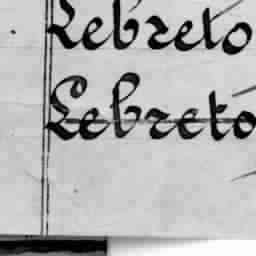 Lebreto
Lebreto